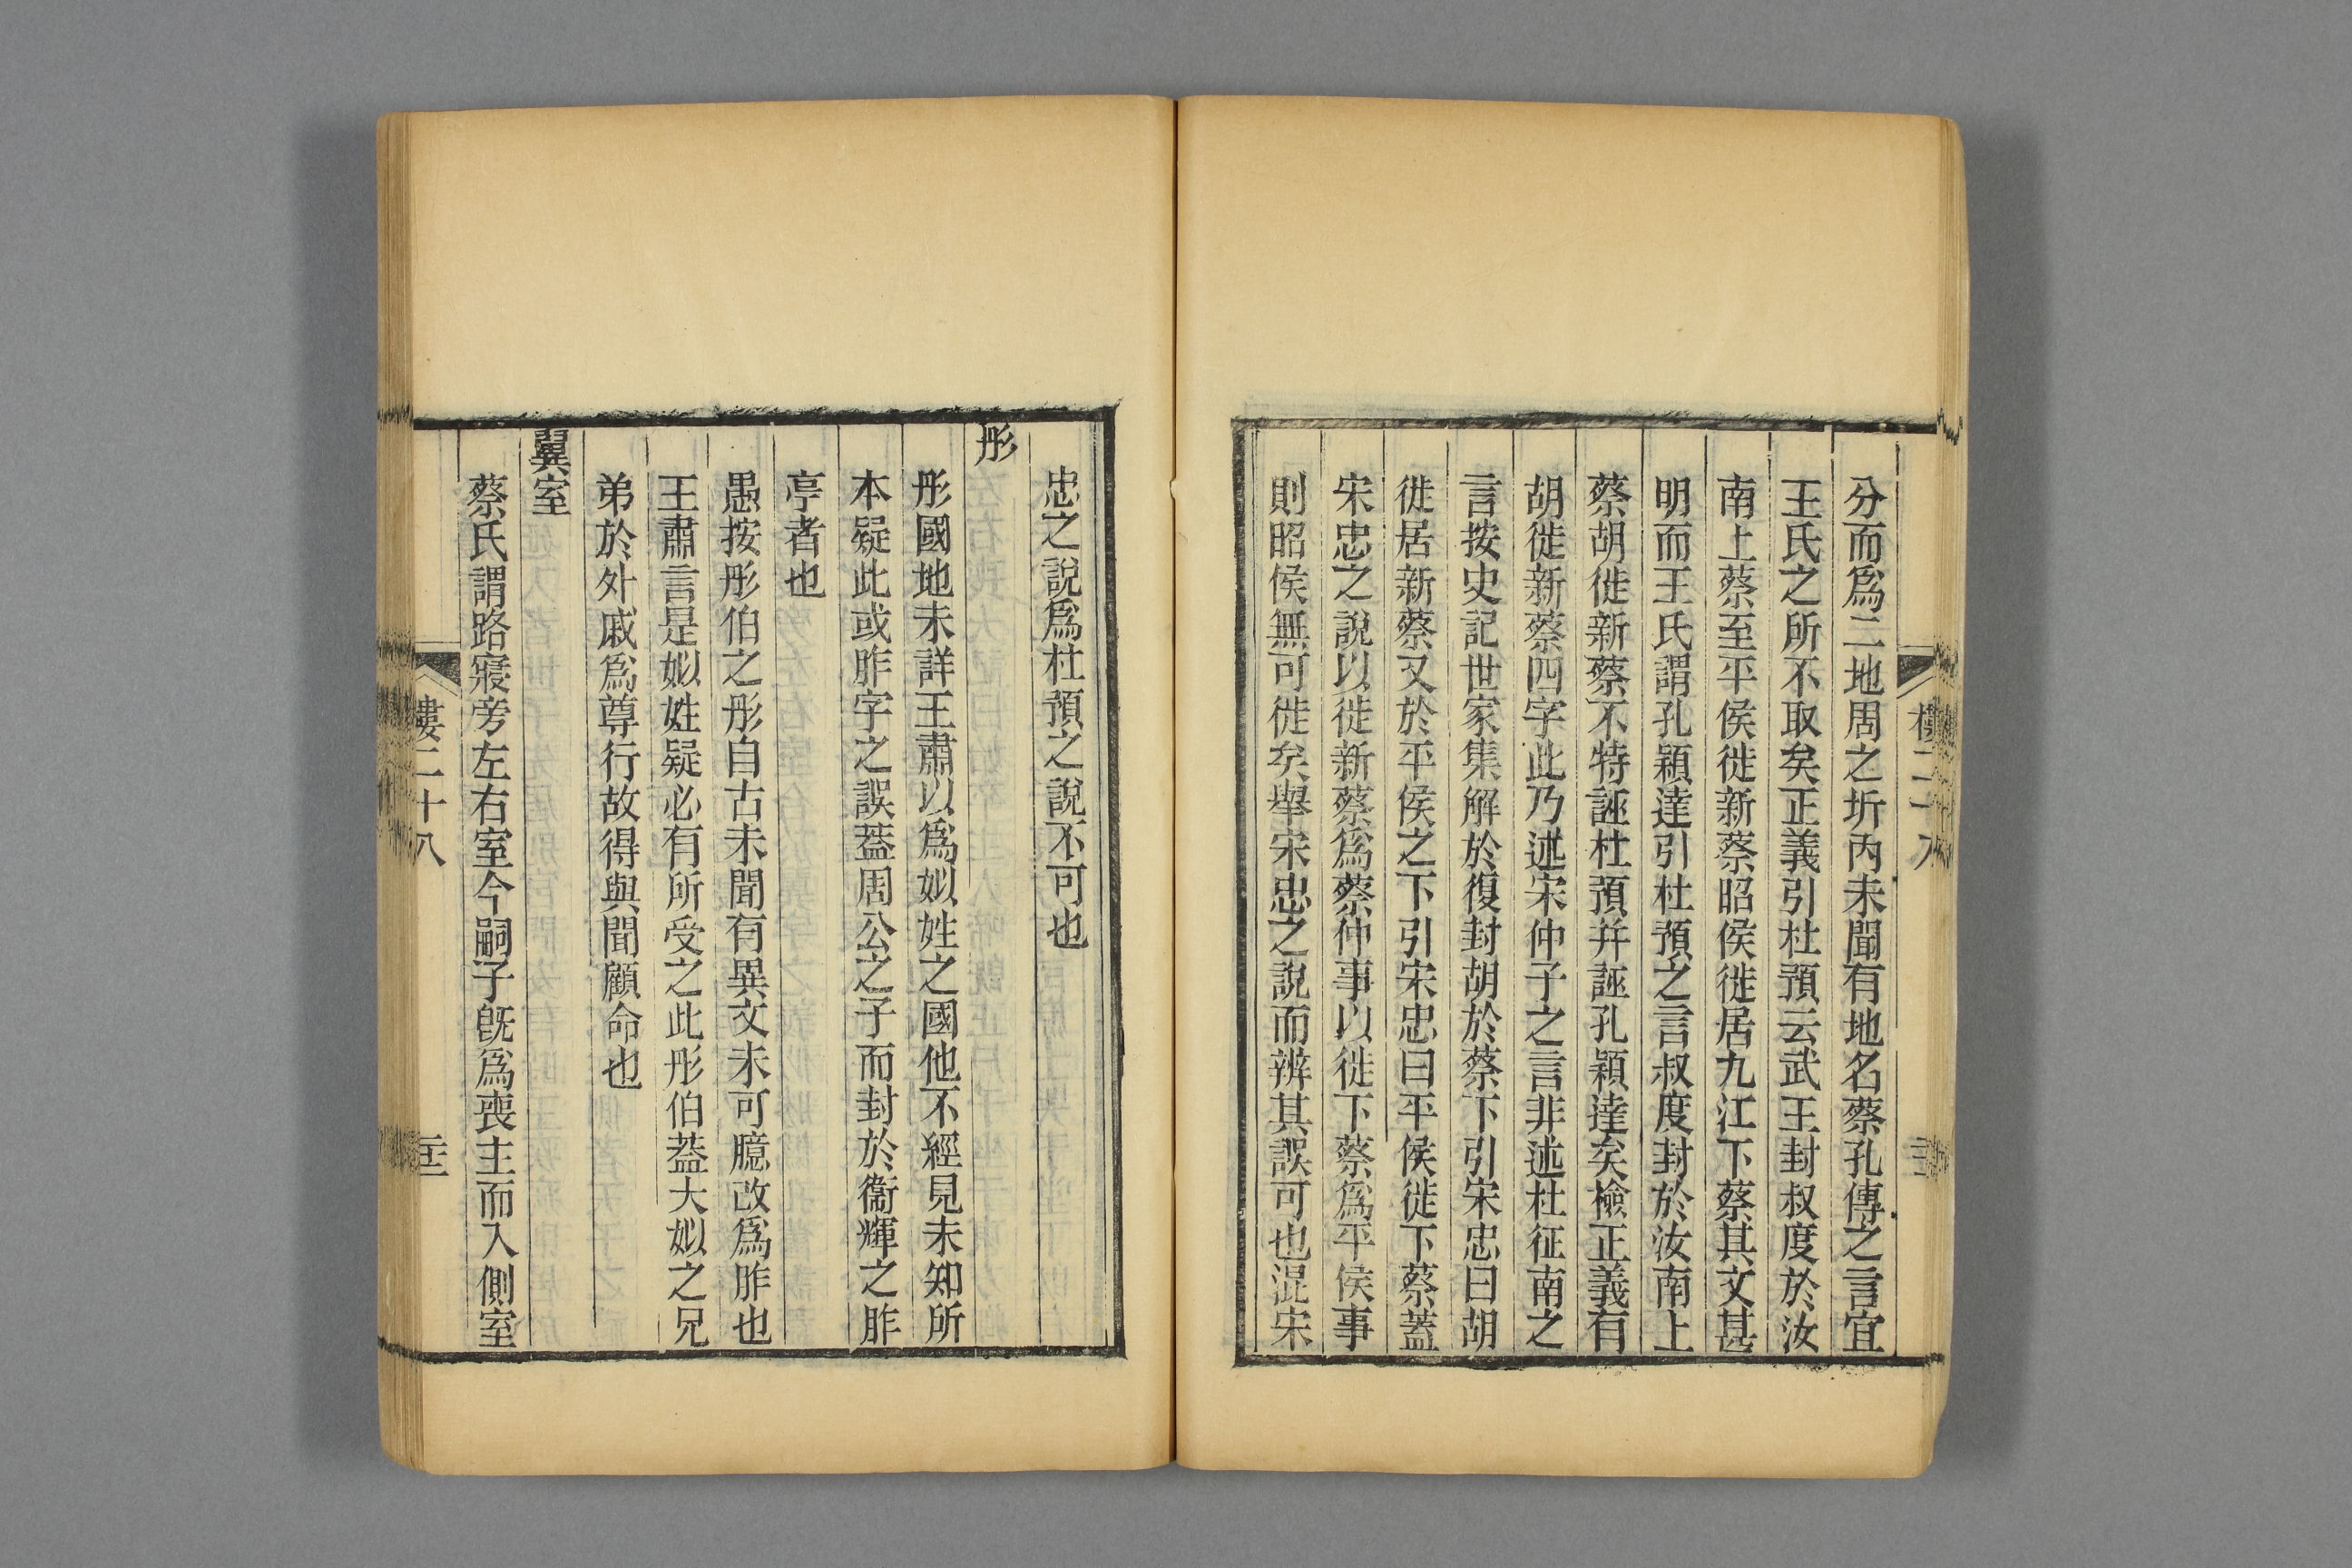 分而爲二地周之圻內未聞有地名蔡孔傳之言宜
王氏之所不取矣正義引杜預云武王封叔度於汝
南上蔡至平侯徙新蔡昭侯徙居九江下蔡其文甚
明而王氏謂孔穎達引杜預之言叔度封於汝南上
蔡胡徙新蔡不特誣杜預并誣孔穎達矣檢正義有
胡徙新蔡四字此乃述宋仲子之言非述杜征南之
言按史記世家集解於復封胡於蔡下引宋忠曰胡
徙居新蔡又於平侯之下引宋忠曰平侯徙下蔡蓋
宋忠之說以徙新蔡爲蔡仲事以徙下蔡爲平侯事
則昭侯無可徙矣舉宋忠之說而辨其誤可也混宋
忠之說爲杜預之說不可也
彤
彤國地未詳王肅以爲姒姓之國他不經見未知所
本疑此或胙字之誤蓋周公之子而封於衞輝之胙
亭者也
愚按彤伯之彤自古未聞有異文未可臆改爲胙也
王肅言是姒姓疑必有所受之此彤伯蓋大姒之兄
弟於外戚爲尊行故得與聞顧命也
翼室
蔡氏謂路寢旁左右室今嗣子旣爲喪主而入側室
樓二十八